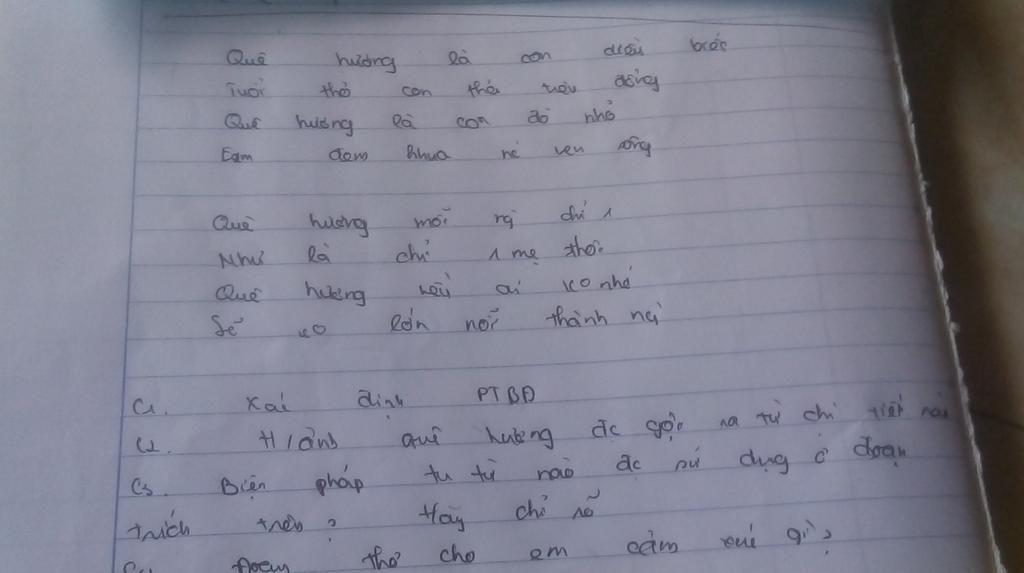 Quê hương là con diều biếc
Tuổi thơ con thả trên đồng
Quê hương là con đò nhỏ
Êm đềm khua nc ven sông
Quê hương mỗi ng chỉ 1
Như là chỉ 1 mẹ thôi
Quê hương nếu ai ko nhớ
Sẽ ko lớn nổi thành ng
C1. Xác định PTBĐ
C2. H/ảnh quê hương đc gợi ra từ chi tiết nào
C3. Biện pháp tu từ nào đc sử dụng ở đoạn
trích trên? Hãy chỉ rõ
thơ cho em cảm xúc gì?